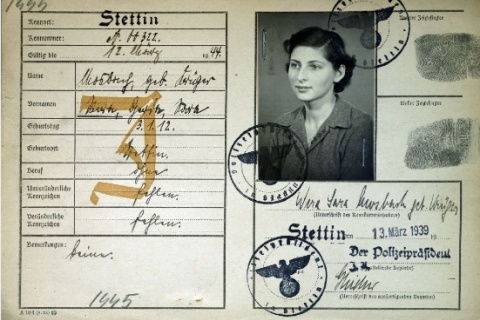 1945
Kennort: Stettin
Kennummer:
Gültig bis 12. März 1944.
Name geb. Krüger
Vornamen Sara
Geburtstag 3. 1. 12.
Geburtsort Stettin
Beruf ohne
Unveränderliche Kennzeichen fehlen.
Veränderliche Kennzeichen fehlen.
Bemerkungen: keine.
1945
J
Rechter Zeigefinger
Linker Zeigefinger
Wera Sara geb. Krüger
(Unterschrift des Kennkarteninhabers)
Stettin, den 13. März 1939
Der Polizeipräsident
(Unterschrift des ausfertigenden Beamten)